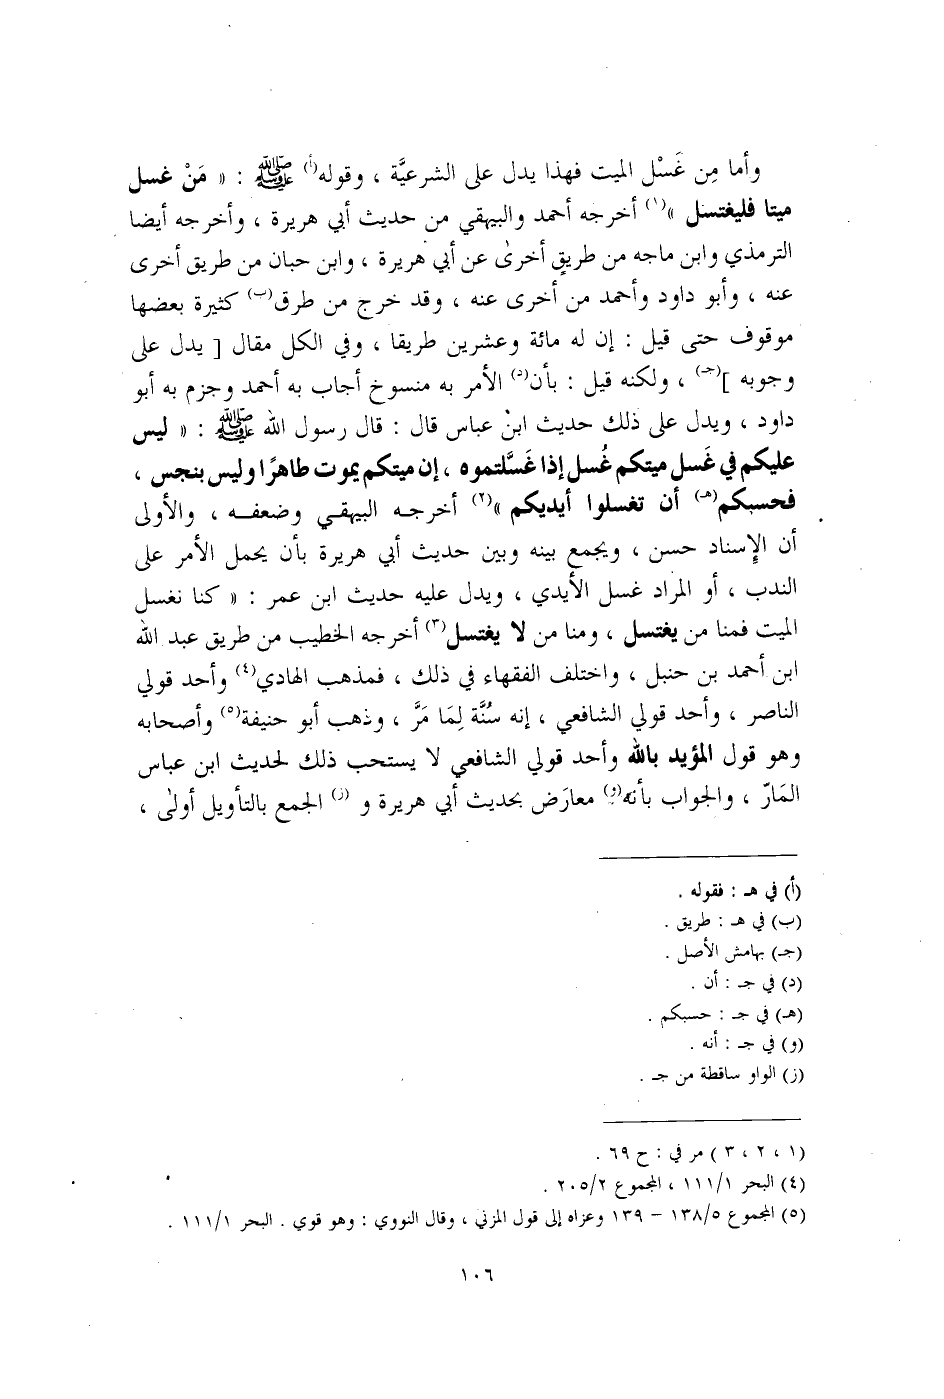 وأما مِن غَسْل الميت فهذا يدل على الشرعيَّة ، وقوله(أ) ﷺ : « مَنْ غسل
ميتا فليغتسل »(١) أخرجه أحمد والبيهقي من حديث أبي هريرة ، وأخرجه أيضا
الترمذي وابن ماجه من طريقٍ أخرىٰ عن أبي هريرة ، وابن حبان من طريق أخرى
عنه ، وأبو داود وأحمد من أخرى عنه ، وقد خرج من طرق(ب) كثيرة بعضها
موقوف حتى قيل : إن له مائة وعشرين طريقا ، وفي الكل مقال [ يدل على
وجوبه ](جـ) ، ولكنه قيل : بأن(د) الأمر به منسوخ أجاب به أحمد وجزم به أبو
داود ، ويدل على ذلك حديث ابنْ عباس قال : قال رسول الله ﷺ : « ليس
عليكم في غَسل ميتكم غُسل إذا غَسَّلتموه ، إن ميتكم يموت طاهرًا وليس بنجس ،
فحسبكم(هـ) أن تغسلوا أيديكم »(٢) أخرجه البيهقي وضعفه ، والأولى
أن الإسناد حسن ، ويجمع بينه وبين حديث أبي هريرة بأن يحمل الأمر على
الندب ، أو المراد غسل الأيدي ، ويدل عليه حديث ابن عمر : « كنا نغسل
الميت فمنا من يغتسل ، ومنا من لا يغتسل(٣) أخرجه الخطيب من طريق عبد الله
ابن أحمد بن حنبل ، واختلف الفقهاء في ذلك ، فمذهب الهادي(٤) وأحد قولي
الناصر ، وأحد قولي الشافعي ، إنه سُنَّة لِمَا مَرَّ ، وذهب أبو حنيفة(٥) وأصحابه
وهو قول المؤيد بالله وأحد قولي الشافعي لا يستحب ذلك لحديث ابن عباس
المَارّ ، والجواب بأنه(و) معارَض بحديث أبي هريرة و (ز) الجمع بالتأويل أولىٰ ،
(أ) في هـ : فقوله .
(ب) في هـ : طريق .
(جـ) بهامش الأصل .
(د) في جـ : أن .
(هـ) في جـ : حسبكم .
(و) في جـ : أنه .
(ز) الواو ساقطة من جـ .
(١ ، ٢ ، ٣ ) مر في : ح ٦٩ .
(٤) البحر ١١١/١ ، المجموع ٢٠٥/٢ .
(٥) المجموع ١٣٨/٥ – ١٣٩ وعزاه إلى قول المزني ، وقال النووي : وهو قوي . البحر ١١١/١ .
١٠٦